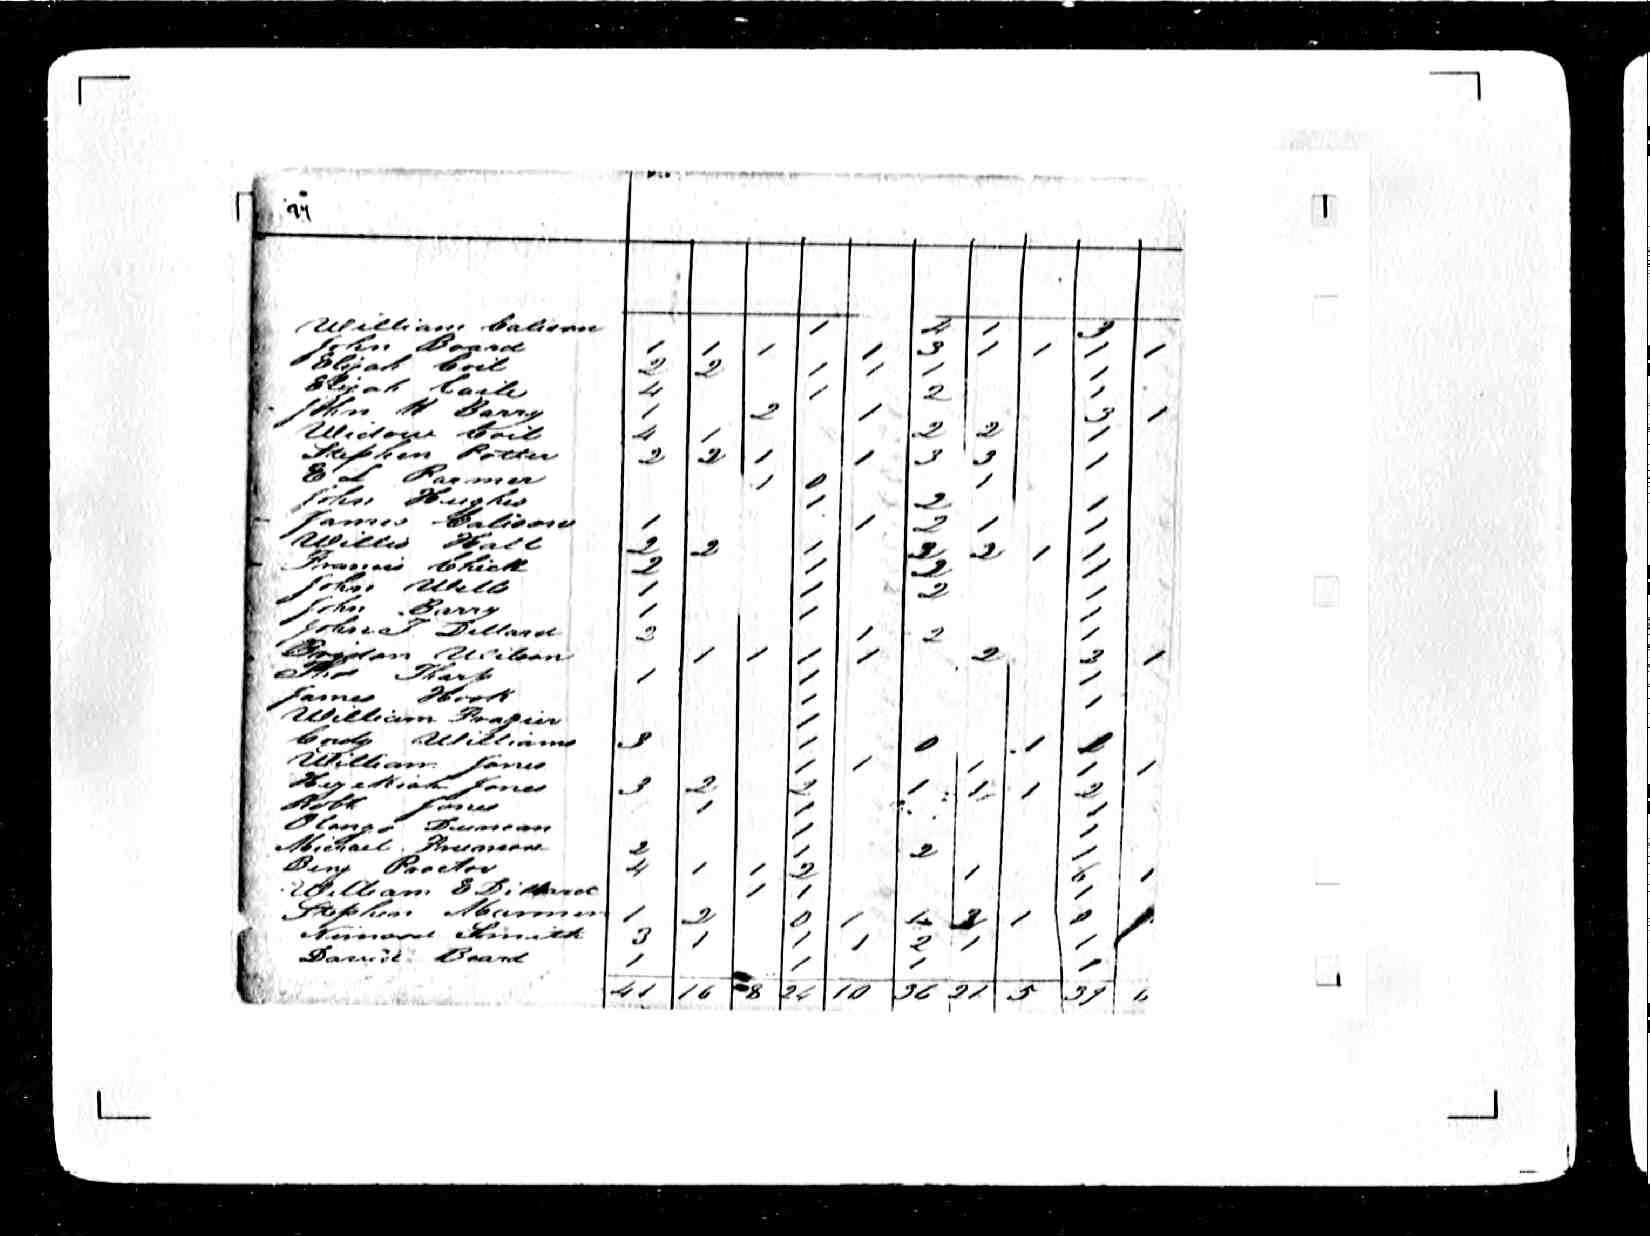 William Calison 1 4 1 3
John Board 1 1 1 1 3 1 1 1 1
Elijah Coil 2 2 1 1 1 1
Elijah Caile 4 1 2 1
John H Barry 1 2 1 3 1
Widow Coil 4 1 2 2 1
Stephen Potter 2 2 1 1 3 3 1
E L Parmer 1 0 1
John Hughs 1 2 1
James Calison 1 1 2 1 1
Willis Hall 2 2 1 2 2 1 1
Francis Chick 2 1 2 1
John Wells 1 1 2 1
John Barry 1 1 1
John T Dillard 2 1 2 1
Wilson 1 1 1 1 2 3 1
Tho Tharp 1 1 1
James Hook 1 1
William Frazier 1
Cody Williams 3 1 0 1
William Jones 1 1 1 1 1
Hezekiah Jones 3 2 2 1 1 1 2
Robt Jones 1 1 1
Duncan 1 1
Michael Freeman 2 1 2 1
Benj Proctor 4 1 1 2 1 1
William E Dillard 1 1 1
Stephen 1 2 0 1 1 0
Smith 3 1 1 1 2 1 1
David Board 1 1 1 1
41 16 8 24 10 36 21 5 39